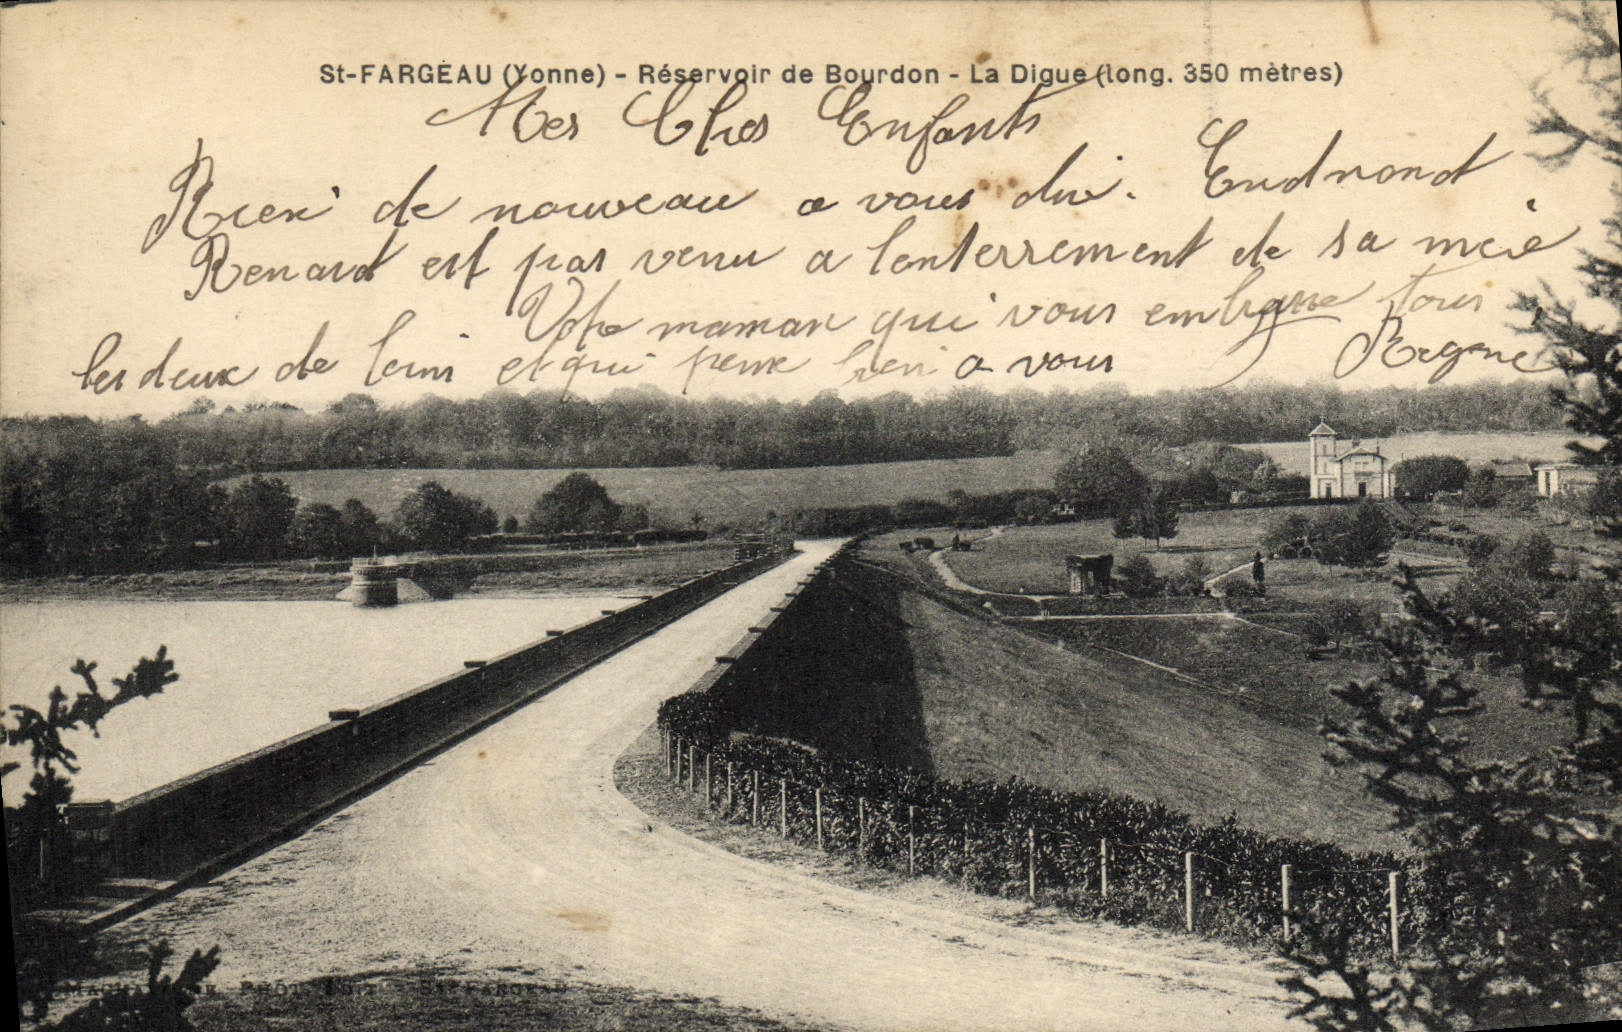 St-FARGEAU (Yonne) - Réservoir de Bourdon - La Digue (long. 350 mètres)
Mes Chers Enfants
Rien de nouveau a vous dire. Edmond
Renard est pas venu a lenterrement de sa mère
Votre maman qui vous embrasse tous
les deux de loin et qui pense bien a vous
PHOT. EDIT. ST-FARGEAU